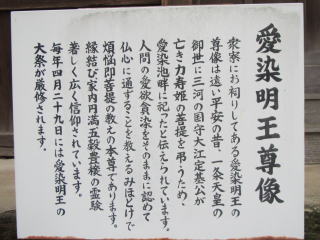 愛染明王尊像
衆寮にお祀りしてある愛染明王の
尊像は遠い平安の昔、一条天皇の
御世に三河の国守大江定基公が
亡き力寿姫の菩提を弔うため、
愛染池畔に祀ったと伝えられています。
人間の愛欲貪染をそのままに認めて
仏心に通ずることを教えるみほとけで
煩悩即菩提の教えの本尊であります。
縁結び家内円満五穀豊穣の霊験
著しく広く信仰されています。
毎年四月二十九日には愛染明王の
大祭が厳修されます。